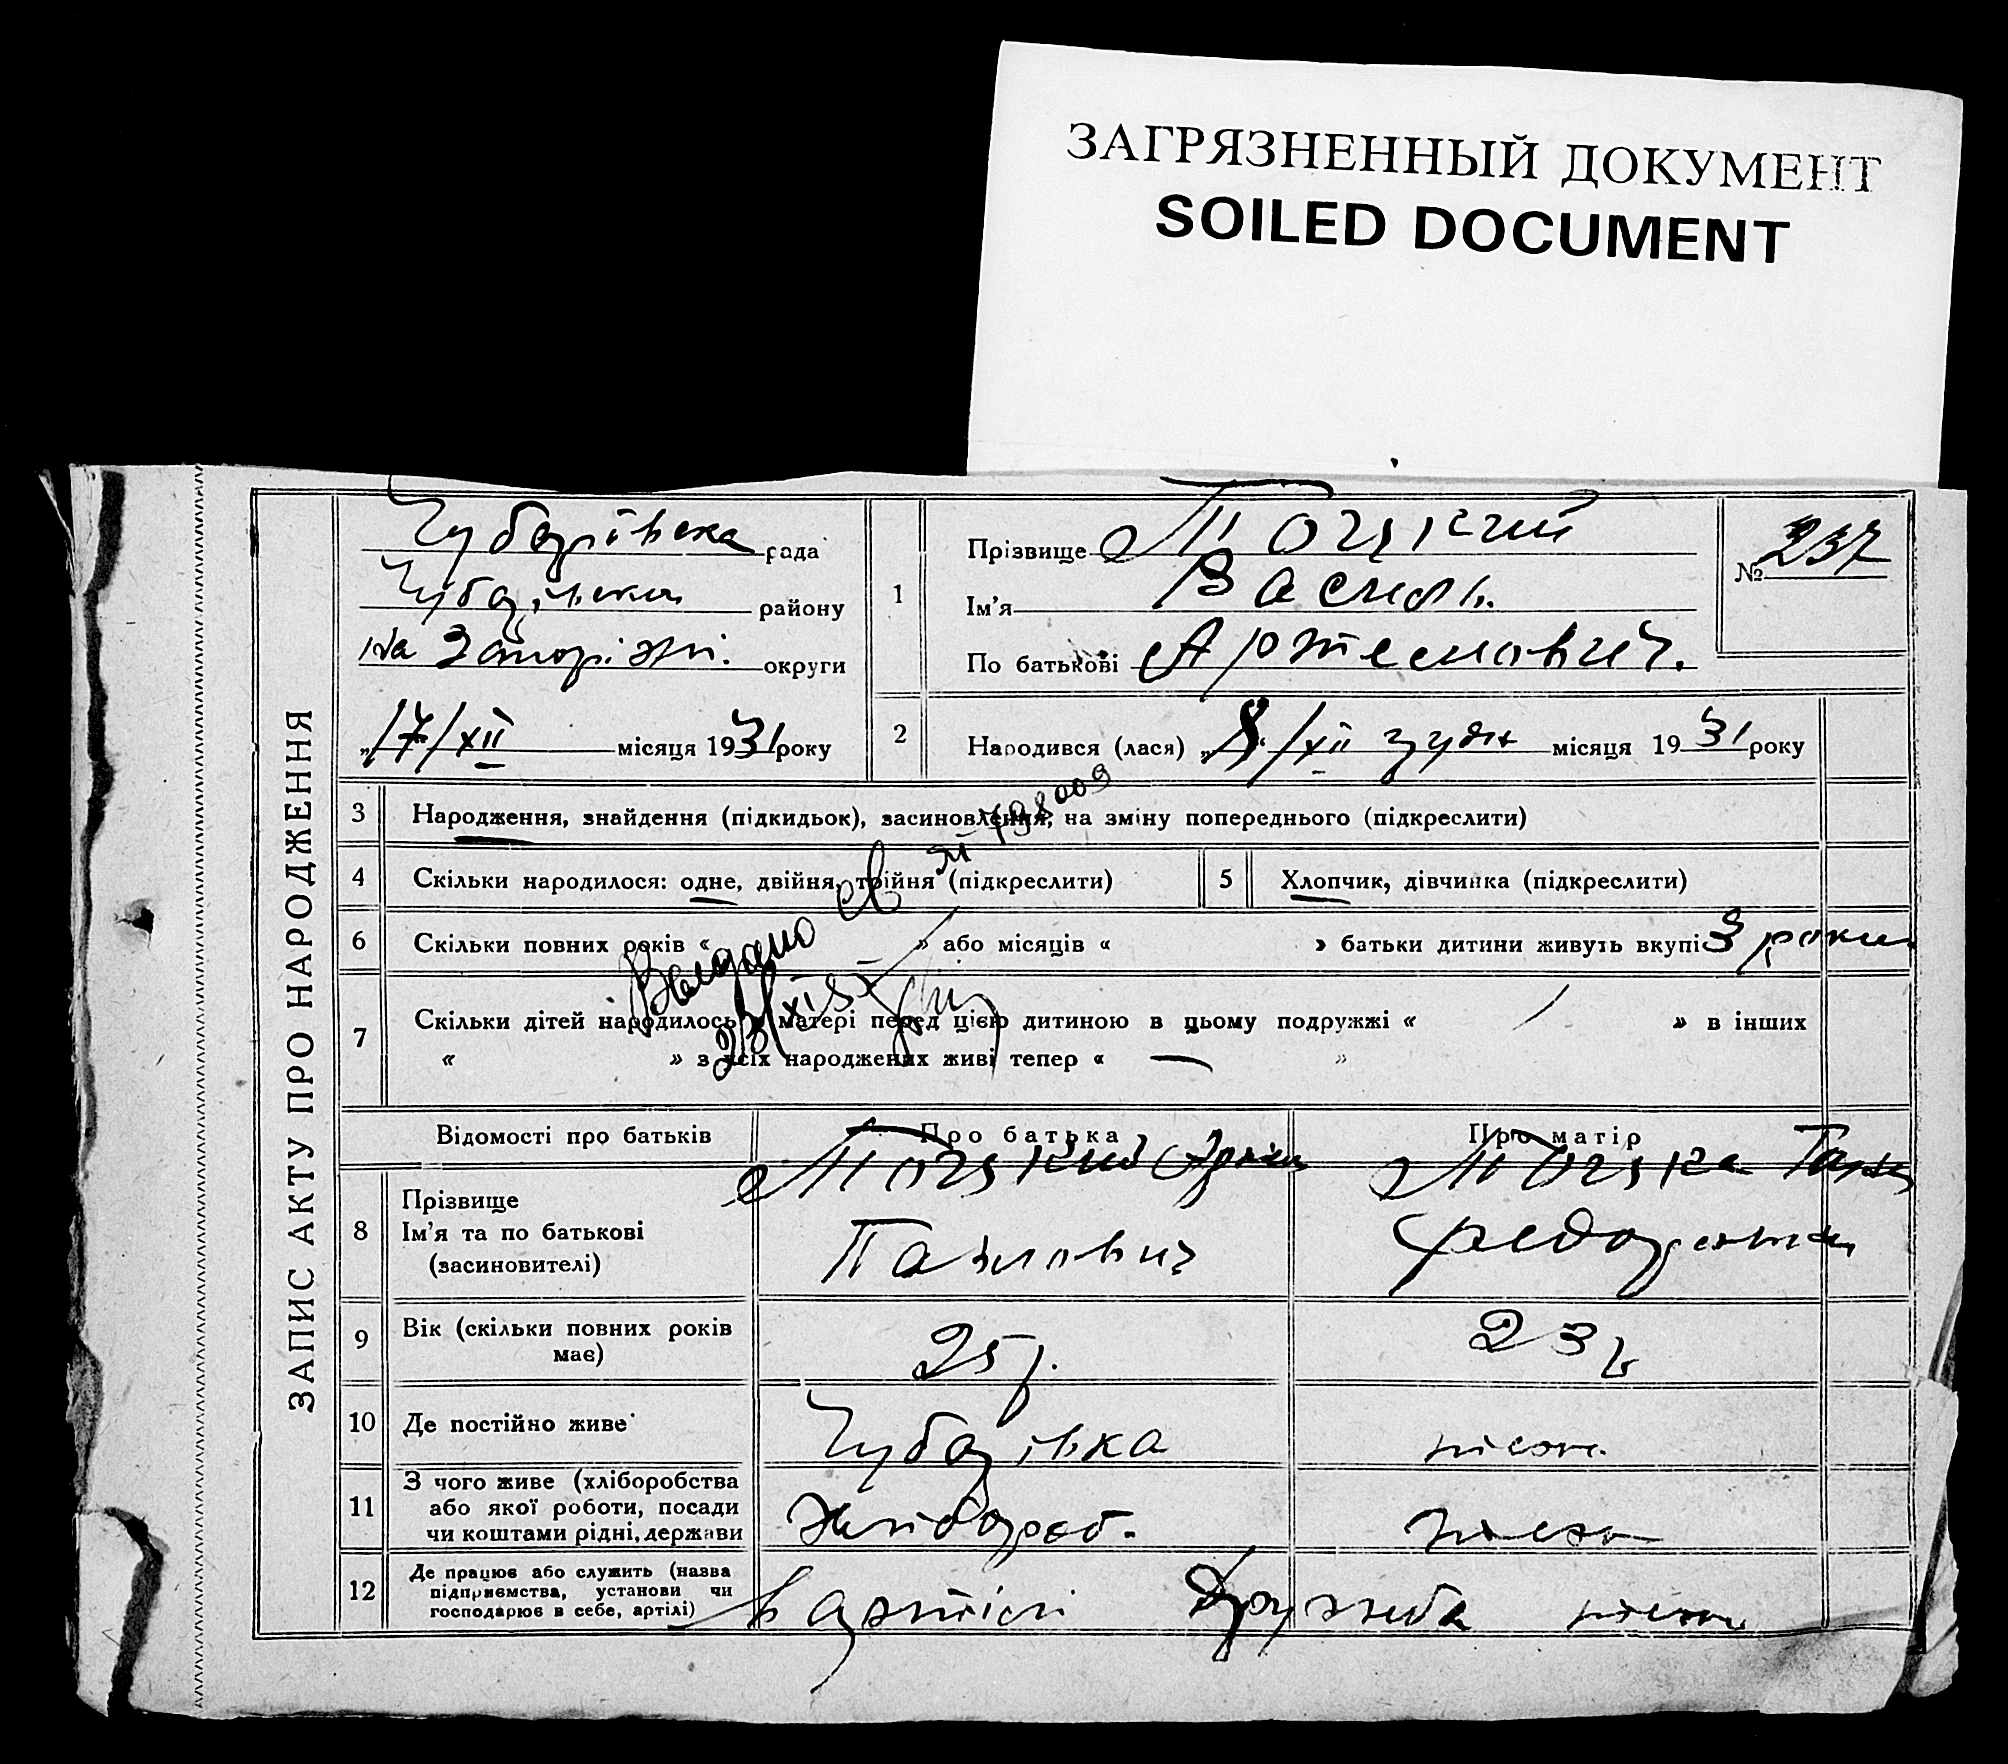 ЗАГРЯЗНЕННЫЙ ДОКУМЕНТ
SOILED DOCUMENT
ЗАПИС АКТУ ПРО НАРОДЖЕННЯ
Чубарівска рада
Чубарівски району
на Запоріжі. округи
"17/XII місяця 1931 року
1
Прізвище Точкий
Ім'я Василь.
По батькові Артемович.
№ 237
2
Народився (лася) „8“/XII грудн місяця 1931 року
3 Народження, знайдення (підкидьок), засиновлення, на зміну попереднього (підкреслити)
4 Скільки народилося: одне, двійня, трійня (підкреслити)
5 Хлопчик, дівчинка (підкреслити)
6 Скільки повних років « » або місяців « » батьки дитини живуть вкупі 3 роки
7 Скільки дітей народилось у матері перед цією дитиною в цьому подружжі « » в інших
« » з усіх народжених живі тепер « — »
Выдано
Відомості про батьків Про батька Про матір
8 Прізвище
Ім'я та по батькові
(засиновителі)
Точкий
Павлович
Точка
Федоровна
9 Вік (скільки повних років
має)
25 р.
23 р
10 Де постійно живе Чубарівка тиеж.
11 З чого живе (хліборобства
або якої роботи, посади
чи коштами рідні, держави
Хлібороб. тиеж
12 Де працює або служить (назва
підприємства, установи чи
господарює в себе, артілі)
в артілі Дружба тиеж